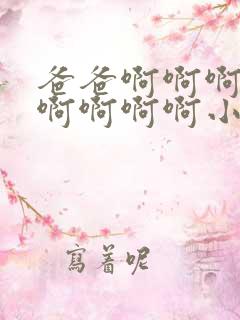 爸爸啊啊啊
啊啊啊啊小
寫着呢